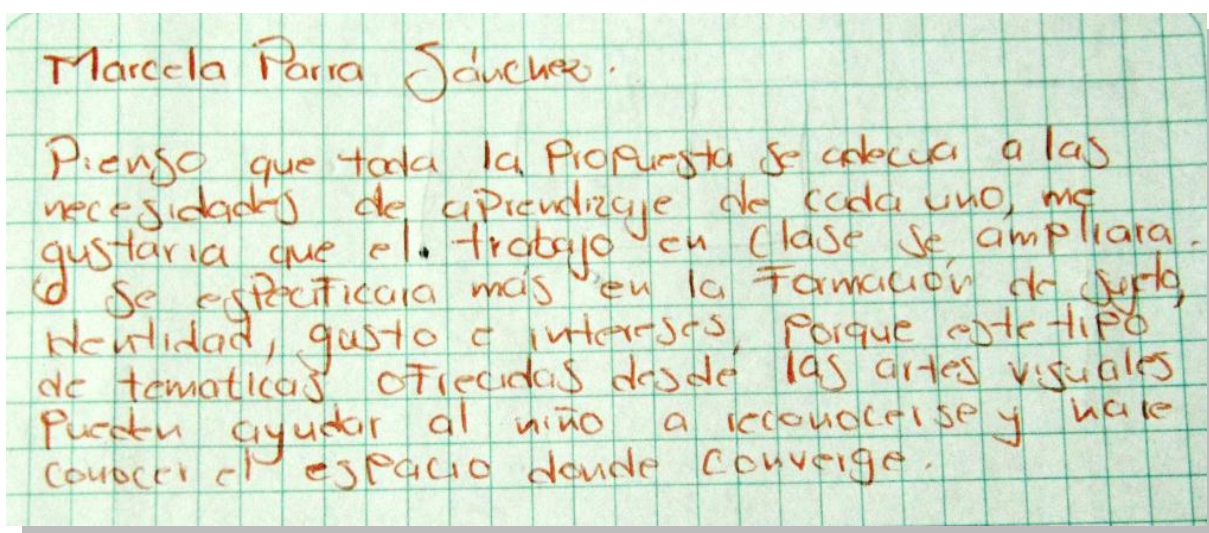 Marcela Parra Sánchez.
Pienso que toda la Propuesta se adecua a las
necesidades de aprendizaje de cada uno, me
gustaria que el. trabajo en clase se ampliara.
o se especificara más en la Formación de sujeto,
identidad, gusto e intereses, porque este tipo
de tematicas ofrecidas desde las artes visuales
Pueden ayudar al niño a reconocerse y hace
conocer el espacio donde converge.